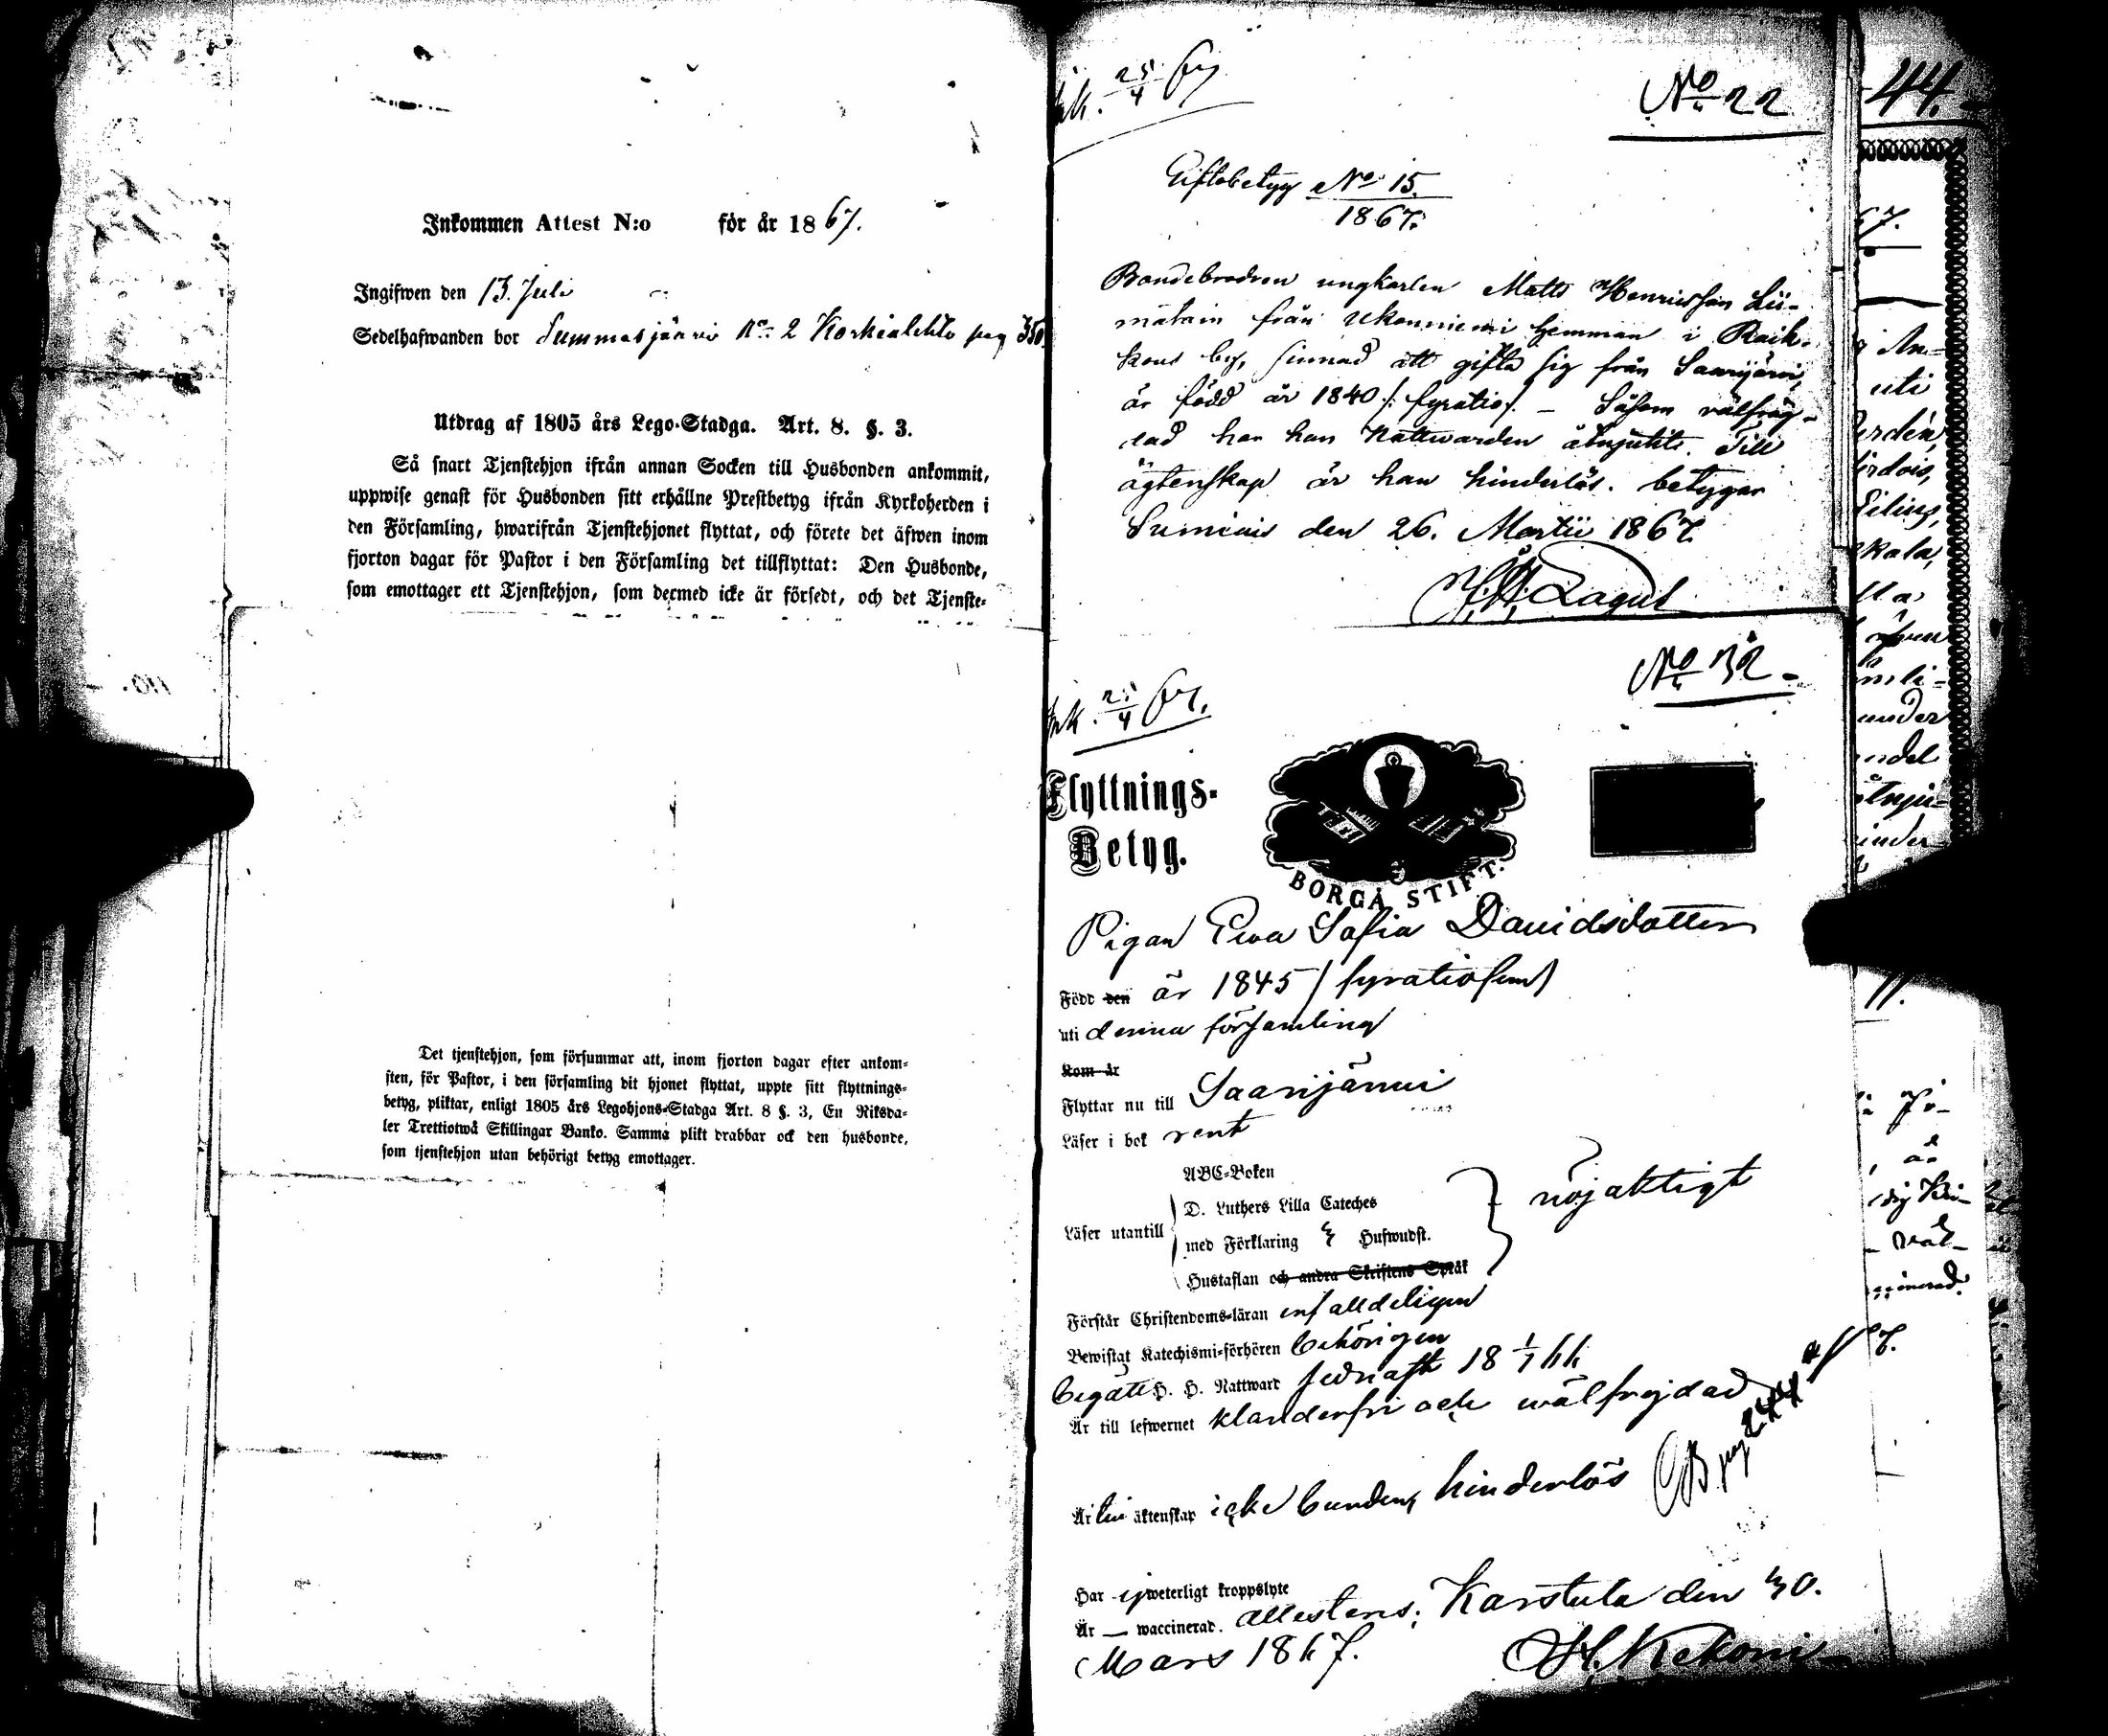 Inkommen Attest N:o för år 1867.
Ingifwen den 13. Juli
Sedelhafwanden bor Summasjärvi No 2 Korkialehto pag 350
Utdrag af 1805 års Lego-Stadga. Art. 8. §. 3.
Så snart Tjenstehjon ifrån annan Socken till Husbonden ankommit,
uppwise genast för Husbonden sitt erhållne Prestbetyg ifrån Kyrkoherden i
den Församling, hwarifrån Tjenstehjonet flyttat, och förete det äfwen inom
fjorton dagar för Pastor i den Församling det tillflyttat: Den Husbonde,
som emottager ett Tjenstehjon, som dermed icke är försedt, och det Tjenste-
Det tjenstehjon, som försummar att, inom fjorton dagar efter ankom-
sten, för Pastor, i den församling dit hjonet flyttat, uppte sitt flyttnings-
betyg, pliktar, enligt 1805 års Legohjons-Stadga Art. 8 §. 3, En Riksda-
ler Trettiotwå Skillingar Banko. Samma plikt drabbar ock den husbonde,
som tjenstehjon utan behörigt betyg emottager.
Ink. 25/4 67
No 22
Giftobetyg No 15.
1867.
Bondebrodren ungkarlen Matts Henriksson Lii-
matain från Ukonniemi hemman i Raik-
kous by, sinnad att gifta sig från Saarijärvi,
är född år 1840 /: fyratio /. – Såsom välfräg-
dad har han Nattwarden åtnjutit. Till
ägtenskap är han hinderlös. betygar
Sumiais den 26. Martii 1867.
Lagus
No 32.
Ink. 25/4 67.
Flyttnings-
Betyg.
BORGÅ STIFT.
Pigan Ewa Sofia Davidsdotter
Född den år 1845 / fyratiofem /
uti denna församling
kom år
Flyttar nu till Saarijärwi
Läser i bok rent
ABC-Boken
D. Luthers Lilla Cateches
Läser utantill med Förklaring & Hufwudst. nöjaktigt
Hustaflan och andra Skriftens Språk
Förstår Christendoms-läran enfalldeligen
Bewistat Katechismi-förhören behörigen
Begått H. H. Nattward sednast 18 1/7 66
Är till lefwernet klanderfri och wälfrejdad
Är till äktenskap icke bunden, hinderlös CB pag 244
Har ej weterligt kroppslyte
Är — waccinerad. Attesteras; Karstula den 30.
Mars 1867. H. Kekoni
44.
67.
uti